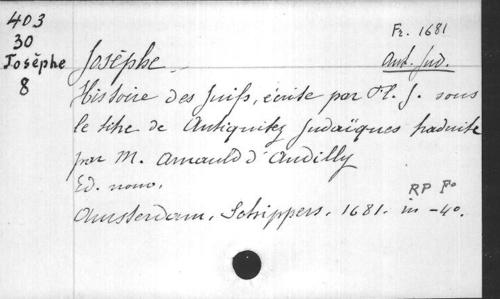 403
30
Josèphe
8
Fr. 1681
Ant. Jud.
Josèphe
Histoire des Juifs, écrite par Fl. J. sous
le titre de Antiquitez Judaïques traduite
par M. Arnauld d'Andilly
Ed. nouv.
RP Fo
Amsterdam, Schippers, 1681. in-4o.